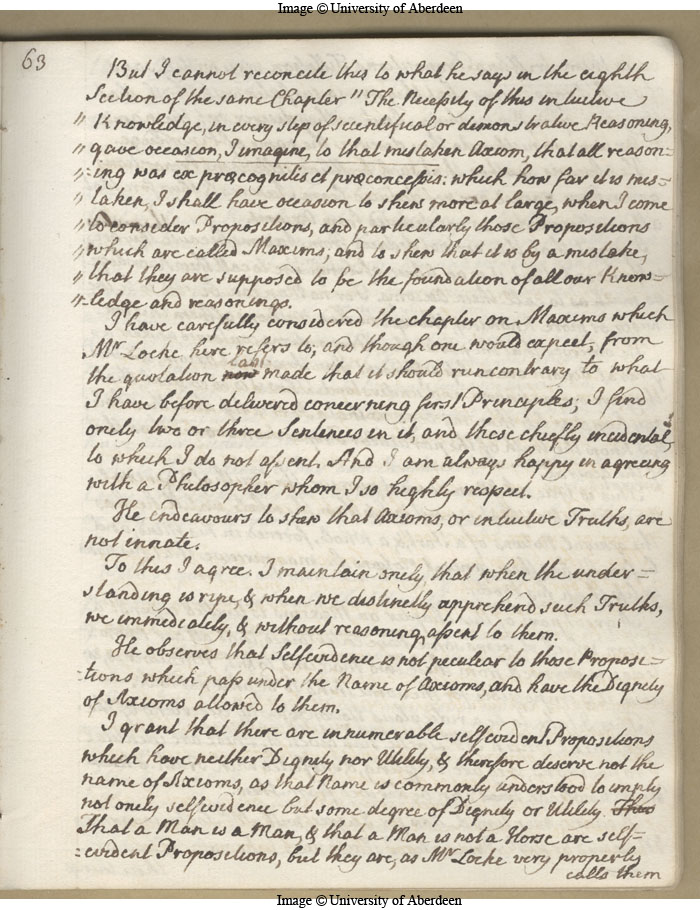 Image © University of Aberdeen
63
But I cannot reconcile this to what he says in the eighth
Section of the same Chapter "The Necessity of this intuitive
" Knowledge, in every step of scientifical or demonstrative Reasoning,
" gave occasion, I imagine, to that mistaken Axiom, that all reason=
"=ing was ex præcognitis et præconcessis: which how far it is mis=
" taken, I shall have occasion to shew more at large, when I come
" to consider Propositions, and particularly those Propositions
" which are called Maxims; and to shew that it is by a mistake,
" that they are supposed to be the foundation of all our Know=
"=ledge and reasonings.
I have carefully considered the chapter on Maxims which
Mr Locke here refers to; and though one would expect, from
the quotation now last made that it should run contrary to what
I have before delivered concerning first Principles; I find
onely two or three Sentences in it, and these chiefly incidental,
to which I do not assent. And I am always happy in agreeing
with a Philosopher whom I so highly respect.
He endeavours to shew that Axioms, or intuitive Truths, are
not innate.
To this I agree. I maintain onely, that when the under=
standing is ripe, & when we distinctly apprehend such Truths,
we immediately, & without reasoning, assent to them.
He observes that Selfevidence is not peculiar to those Proposi=
=tions which pass under the Name of Axioms, and have the Dignity
of Axioms allowed to them.
I grant that there are innumerable selfevident Propositions
which have neither Dignity nor Utility, & therefore deserve not the
name of Axioms, as that Name is commonly understood to imply
not onely selfevidence but some degree of Dignity or Utility.
That a Man is a Man, & that a Man is not a Horse are self=
=evident Propositions, but they are, as Mr Locke very properly
calls them
Image © University of Aberdeen